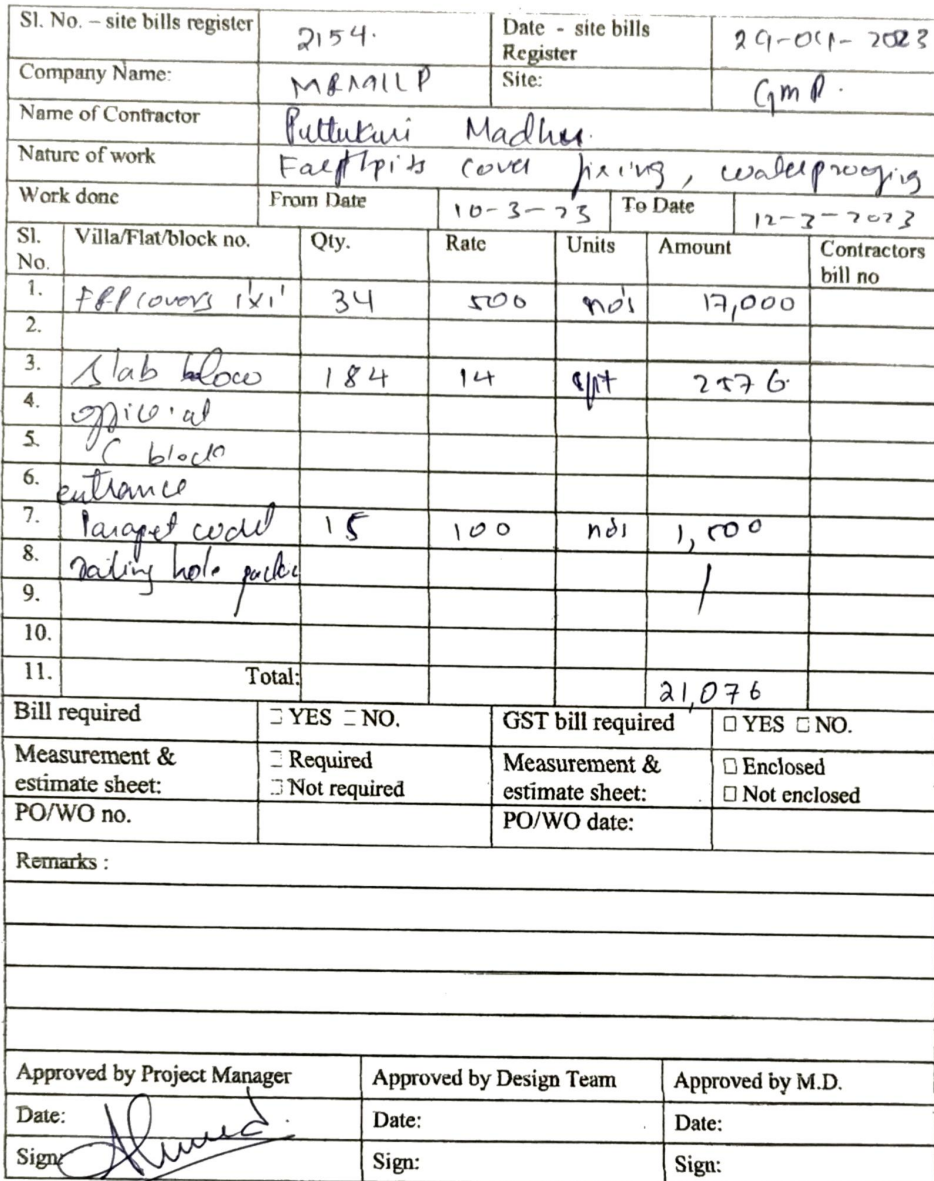 Sl. No. – site bills register 2154. Date - site bills Register 29-04-2023
Company Name: MRMLLP Site: GMR.
Name of Contractor Puttukuri Madhu.
Nature of work Earthpits cover fixing, waterproofing
Work done From Date 10-3-23 To Date 12-3-2023
Sl. No. Villa/Flat/block no. Qty. Rate Units Amount Contractors bill no
1. FRP covers 1'x1' 34 500 no's 17,000
2.
3. Slab 184 14 sft 2576
4.
5. C block
6. entrance
7. Parapet 15 100 nos 1,500
8. railing hole
9.
10.
11. Total: 21,076
Bill required □ YES □ NO. GST bill required □ YES □ NO.
Measurement & estimate sheet: □ Required □ Not required Measurement & estimate sheet: □ Enclosed □ Not enclosed
PO/WO no. PO/WO date:
Remarks :
Approved by Project Manager Approved by Design Team Approved by M.D.
Date: Date: Date:
Sign: Sign: Sign: